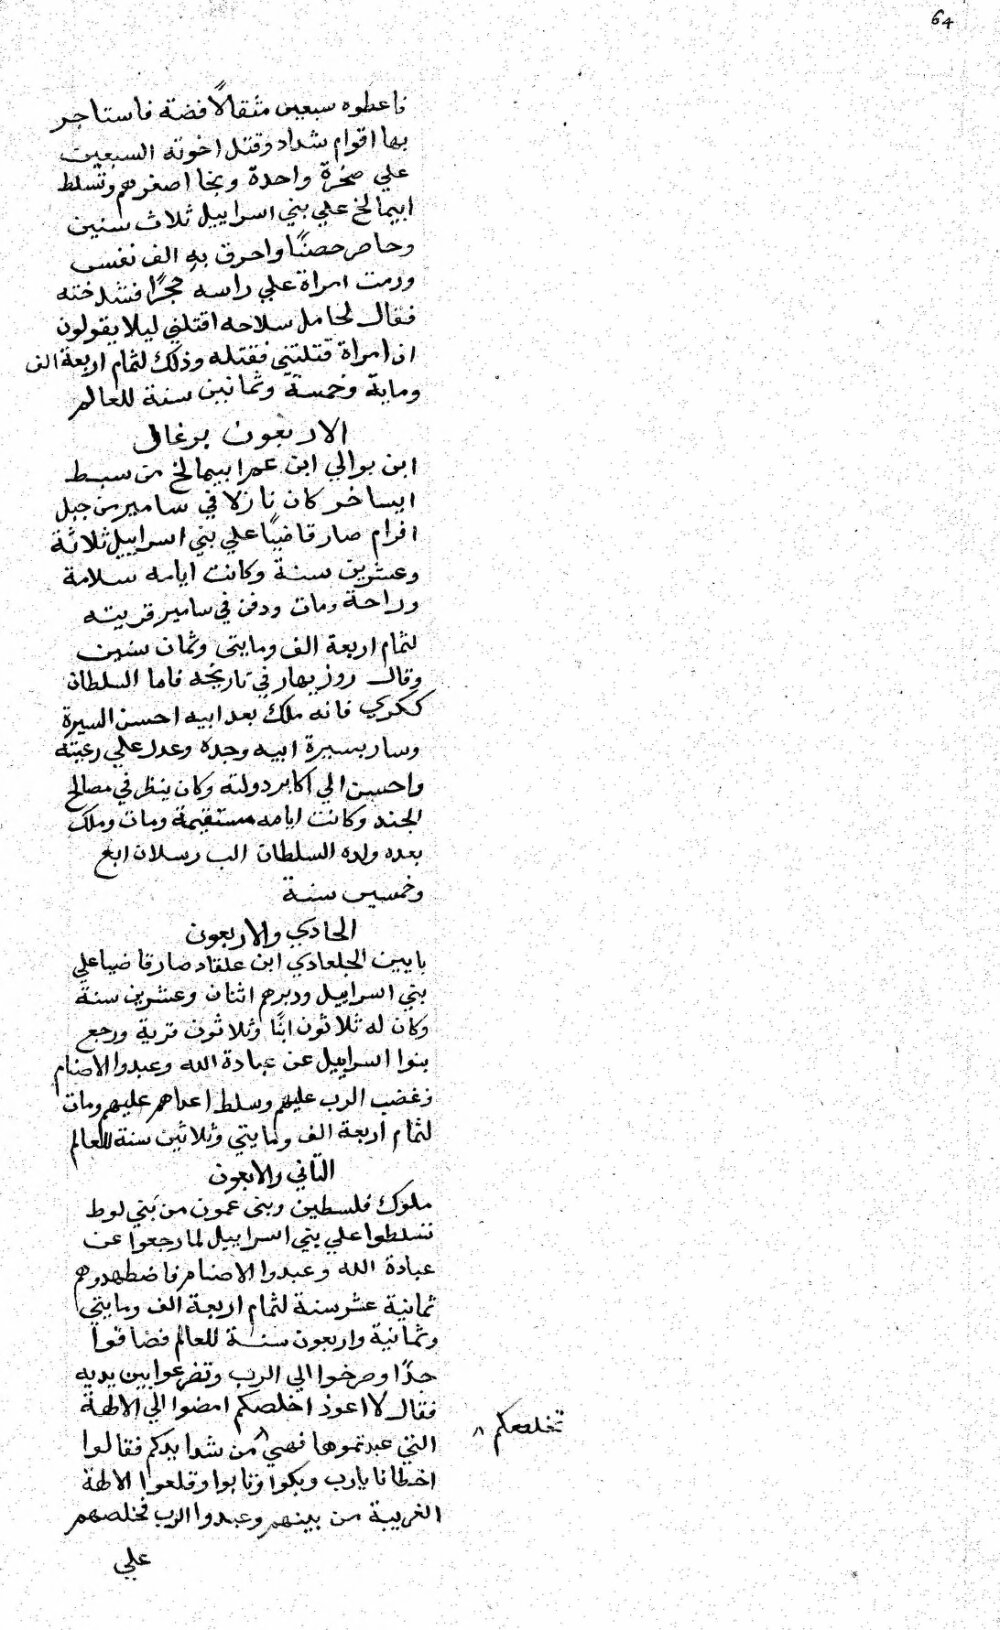 64
فاعطوه سبعين مثقالًا فضة فاستاجر
بها اقوام شداد وقتل اخوته السبعين
علي صخرة واحدة ونجا اصغرهم وتسلط
ابيمالخ علي بني اسراييل ثلاث سنين
وحاصر حصنًا واحرق به الف نفس
ورمت امراة علي راسه حجرًا فشدخته
فقال لحامل سلاحه اقتلني ليلا يقولون
ان امراة قتلتني فقتله وذلك لتمام اربعة الف
وماية وخمسة وثمانين سنة للعالم
الاربعون برغال
ابن بوالي ابن عم ابيمالخ من سبط
ايساخر كان نازلا في سامير من جبل
افرام صار قاضيًا علي بني اسراييل ثلاثة
وعشرين سنة وكانت ايامه سلامة
وراحة ومات ودفن في سامير قريته
لتمام اربعة الف ومايتي وثمان سنين
وقال روزبهار في تاريخه فاما السلطان
ككري فانه ملك بعد ابيه احسن السيرة
وسار بسيرة ابيه وجده وعدل علي رعيته
واحسن الي اكابر دولته وكان ينظر في مصالح
الجند وكانت ايامه مستقيمة ومات وملك
بعده ولده السلطان الب رسلان ابع
وخمسين سنة
الحادي والاربعون
يايين الجلعادي ابن علقاد صار قاضيا علي
بني اسراييل ودبرهم اثنان وعشرين سنة
وكان له ثلاثون ابنًا وثلاثون قرية ورجع
بنوا اسراييل عن عبادة الله وعبدوا الاصنام
فغضب الرب عليهم وسلط اعداهم عليهم ومات
لتمام اربعة الف ومايتي وثلاثين سنة للعالم
الثاني والابعون
ملوك فلسطين وبني عمون من بني لوط
تسلطوا علي بني اسراييل لما رجعوا عن
عبادة الله وعبدوا الاصنام فاضطهدوهم
ثمانية عشر سنة لتمام اربعة الف ومايتي
وثمانية واربعون سنة للعالم فضاقوا
جدًا وصرخوا الي الرب وتضرعوا بين يديه
فقال لا اعوذ اخلصكم امضوا الي الالهة
التي عبدتموها فهي ^ من شدايدكم فقالوا
تخلصكم ^
اخطانا يا رب وبكوا وتابوا وقلعوا الالهة
الغريبة من بينهم وعبدوا الرب فخلصهم
علي